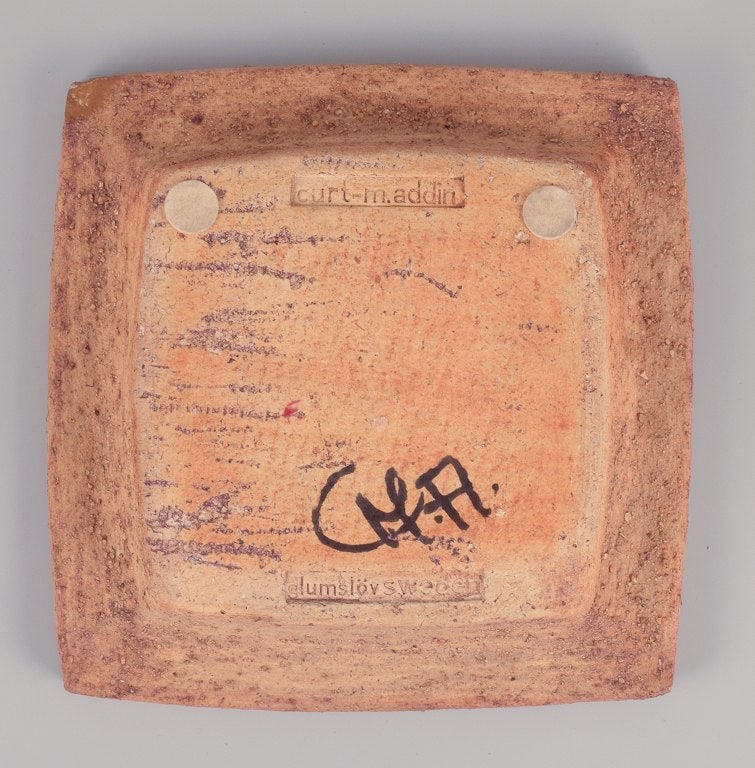 curt-m.addin
CM.A.
glumslöv sweden